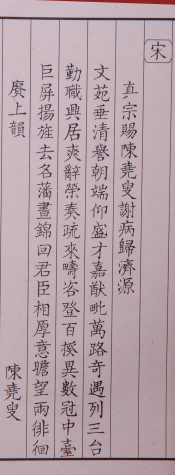 宋
真宗賜陳堯叟謝病歸濟源
文苑垂清譽朝端仰盛才嘉猷毗萬路奇遇列三台
勤職興居爽辭榮奏疏來疇咨登百揆異數冠中臺
巨屏揚旌去名藩晝錦回君臣相厚意瞻望兩徘徊
賡上韻
陳堯叟